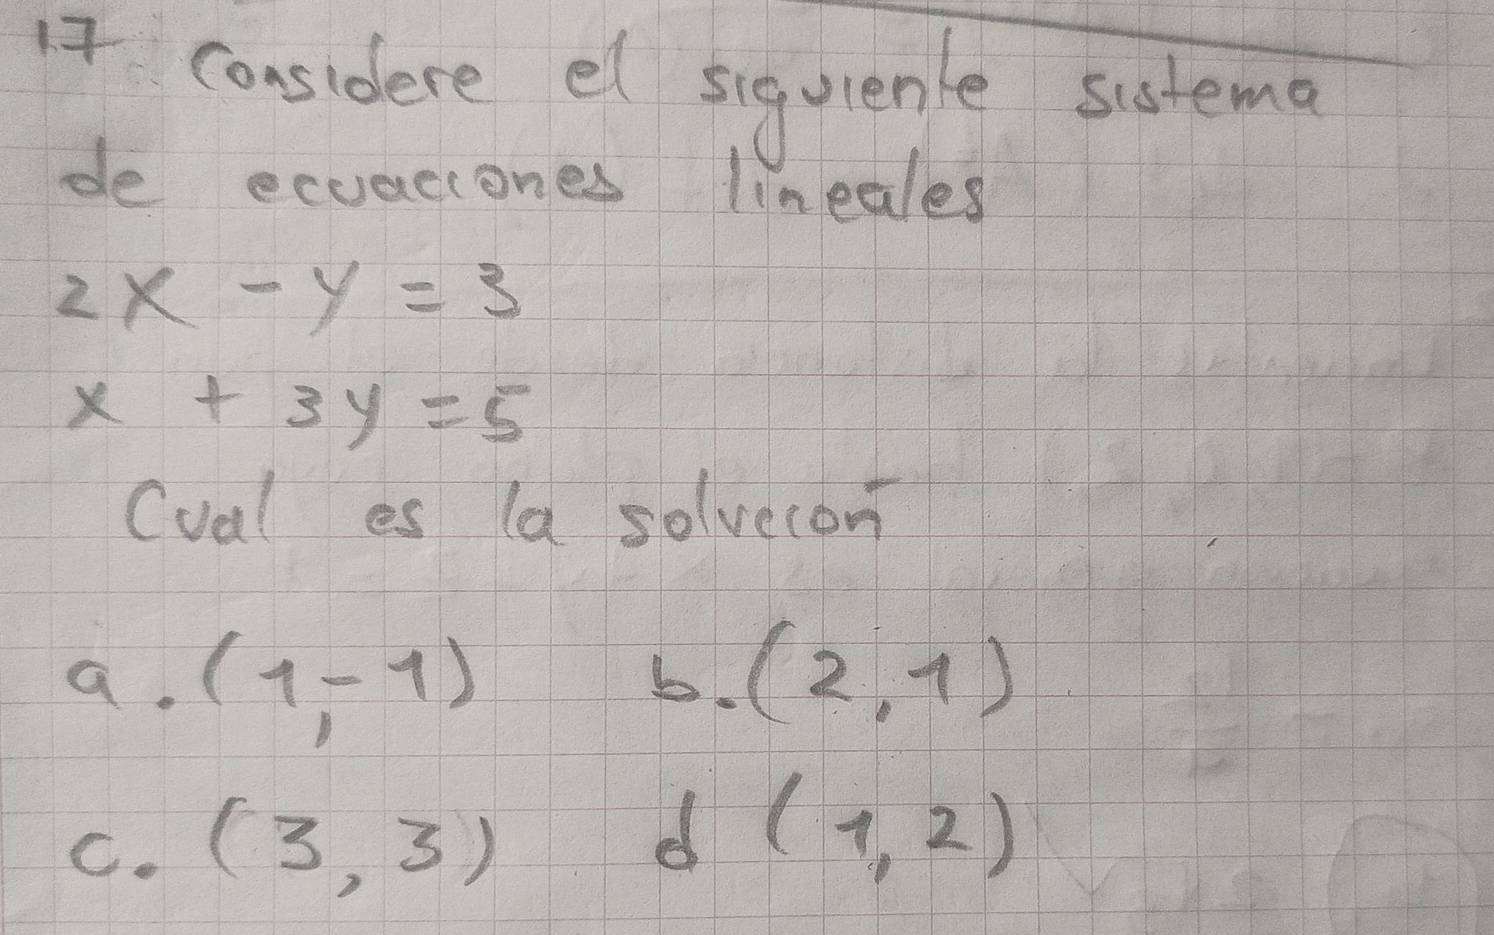 17 Considere el siguiente sistema
de ecuaciones lineales
2x - y = 3
x + 3y = 5
Cual es la solucion
a. (1,-1) b. (2,1)
c. (3,3) d (1,2)